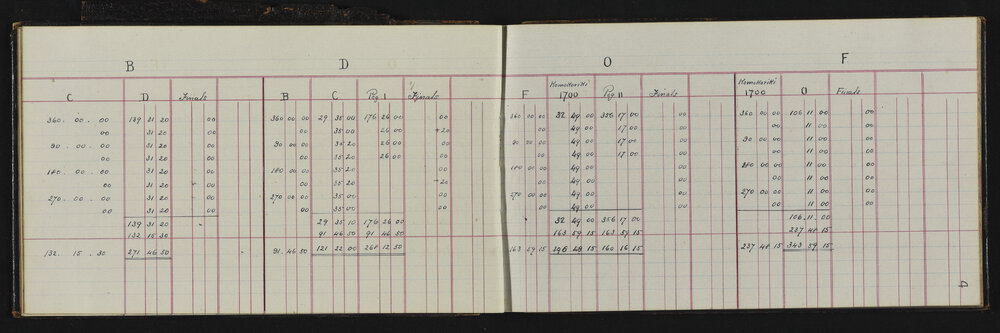 B D O F
C D Finals B C Peg 1 Finals F 1700 Peg 11 Finals 1700 O Finals
360 . 00 . 00 139 31 20 00 360 00 00 29 35 00 176 26 00 00 360 00 00 32 49 00 356 17 00 00 360 00 00 106 11 00 00
00 31 20 00 00 35 00 26 00 +20 00 49 00 17 00 00 00 11 00 00
90 . 00 . 00 31 20 00 90 00 00 35 20 26 00 00 90 00 00 49 00 17 00 00 90 00 00 11 00 00
00 31 20 00 00 35 20 26 00 00 00 49 00 17 00 00 00 11 00 00
180 . 00 . 00 31 20 00 180 00 00 35 20 00 180 00 00 49 00 00 180 00 00 11 00 00
00 31 20 00 00 35 20 -20 00 49 00 00 00 11 00 00
270 . 00 . 00 31 20 00 270 00 00 35 00 00 270 00 00 49 00 00 270 00 00 11 00 00
00 31 20 00 00 35 00 00 00 49 00 00 00 11 00 00
139 31 20 29 35 10 176 26 00 32 49 00 356 17 00 106 . 11 . 00
132 15 30 91 46 50 91 46 50 163 59 15 163 59 15 237 48 15
132 . 15 . 30 271 46 50 91 . 46 . 50 121 22 00 268 12 50 163 59 15 196 48 15 160 16 15 237 48 15 343 59 15
4